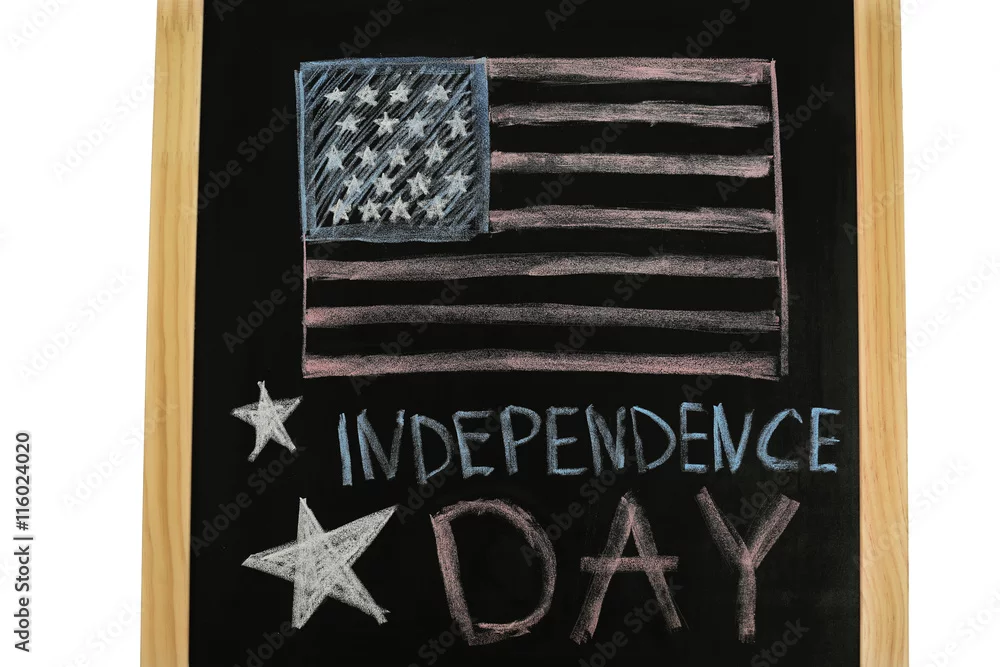 INDEPENDENCE
DAY
Adobe Stock | #116024020